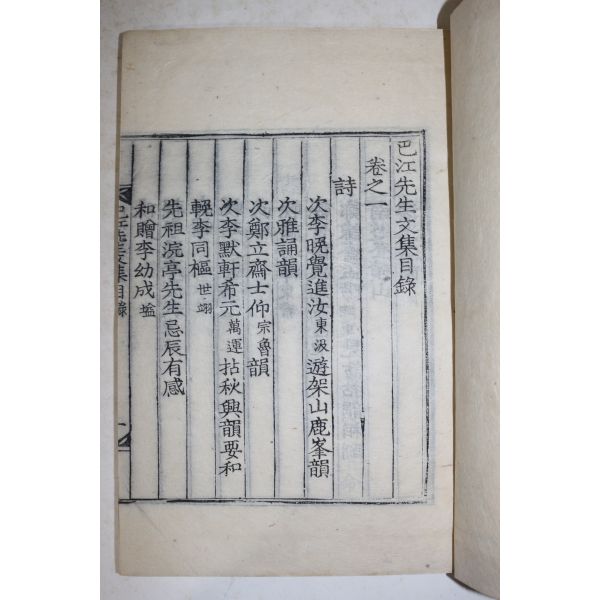 巴江先生文集目錄
卷之一
詩
次李晚覺進汝東汲遊架山鹿峯韻
次雅誦韻
次鄭立齋士仰宗魯韻
次李默軒希元萬運拈秋興韻要和
輓李同樞世翊
先祖浣亭先生忌辰有感
和贈李幼成㙖
巴江先生文集目錄
一